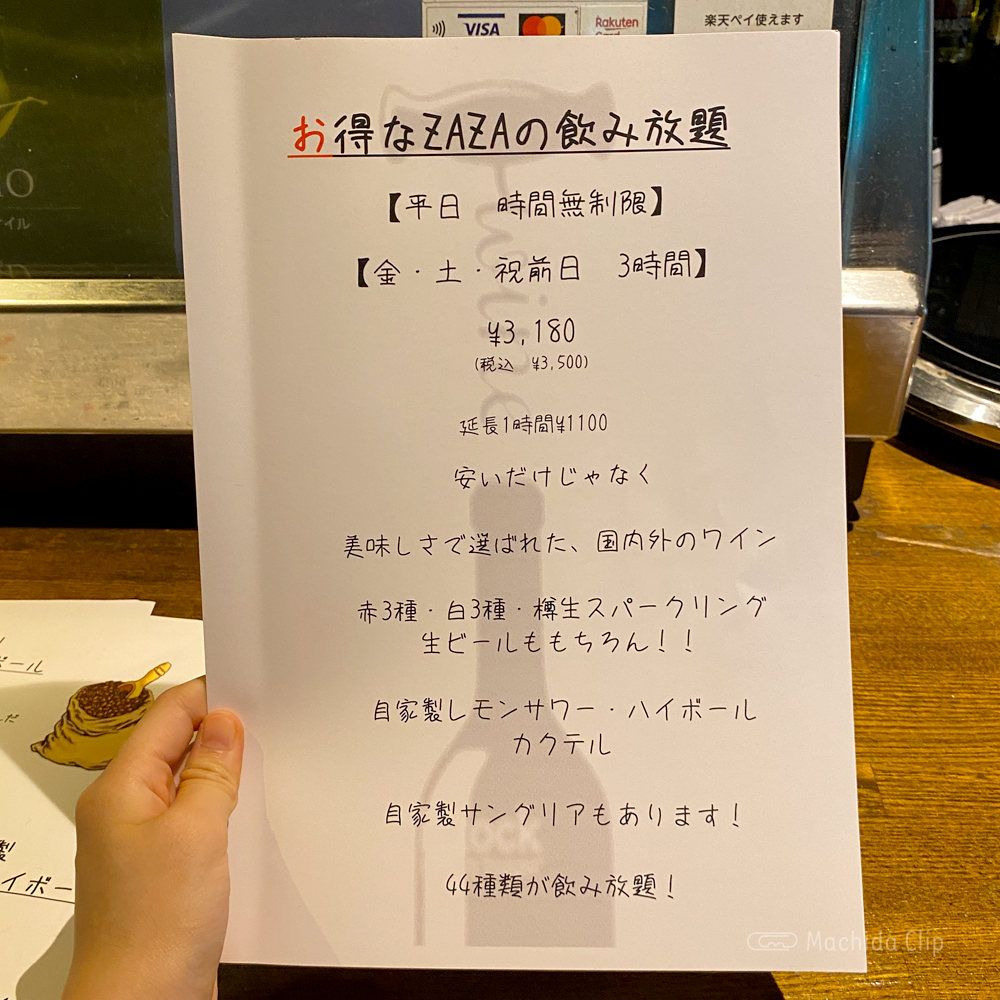 VISA
Rakuten
楽天ペイ使えます
お得なZAZAの飲み放題
【平日　時間無制限】
【金・土・祝前日　3時間】
¥3,180
(税込　¥3,500)
延長1時間¥1100
安いだけじゃなく
美味しさで選ばれた、国内外のワイン
赤3種・白3種・樽生スパークリング
生ビールももちろん！！
自家製レモンサワー・ハイボール
カクテル
自家製サングリアもあります！
44種類が飲み放題！
ボール
製
イボー
Machida Clip